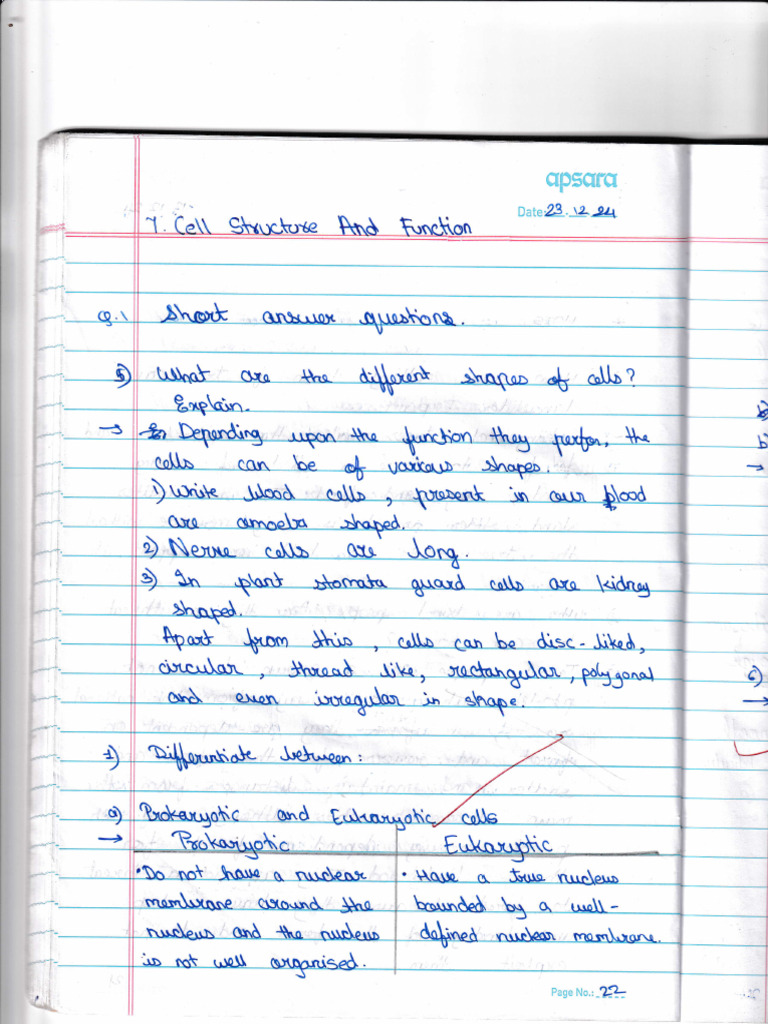 apsara
Date: 23.12.24
7. Cell Structure And Function
Q.1 Short answer questions.
5) What are the different shapes of cells?
Explain.
→ Depending upon the function they perfor, the
cells can be of various shapes.
1) Write blood cells, present in our blood
are amoeba shaped.
2) Nerve cells are long.
3) In plant stomata guard cells are kidney
shaped.
Apart from this, cells can be disc-liked,
circular, thread like, rectangular, polygonal
and even irregular in shape.
7) Differentiate between:
a) Prokaryotic and Eukaryotic cells
→ Prokaryotic Eukaryotic
• Do not have a nuclear • Have a true nucleus
membrane around the bounded by a well-
nucleus and the nucleus defined nuclear membrane.
is not well organised.
Page No.: 22
b)
b
→
6)
→